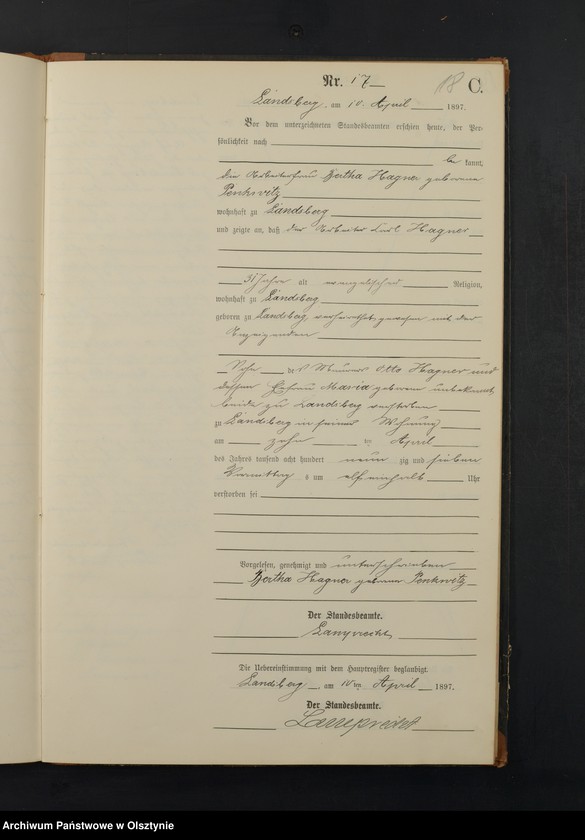 Nr. 17
18 C.
Landsberg, am 10. April 1897.
Vor dem unterzeichneten Standesbeamten erschien heute, der Per-
sönlichkeit nach
be kannt,
die Arbeiterfrau Bertha Hagner geborene
Penkwitz
wohnhaft zu Landsberg
und zeigte an, daß der Arbeiter Carl Hagner
31 Jahre alt evangelischer Religion,
wohnhaft zu Landsberg
geboren zu Landsberg, verheirathet gewesen mit der
Anzeigenden
Sohn des Maurers Otto Hagner und
dessen Ehefrau Maria geborene unbekannt,
beide zu Landsberg verstorben
zu Landsberg in seiner Wohnung
am zehn ten April
des Jahres tausend acht hundert neun zig und sieben
Vormittag s um elf einhalb Uhr
verstorben sei
Vorgelesen, genehmigt und unterschrieben
Bertha Hagner geborene Penkwitz
Der Standesbeamte.
Die Uebereinstimmung mit dem Hauptregister beglaubigt.
Landsberg, am 10 ten April 1897.
Der Standesbeamte.
Archiwum Państwowe w Olsztynie
www.szukajwarchiwach.gov.pl